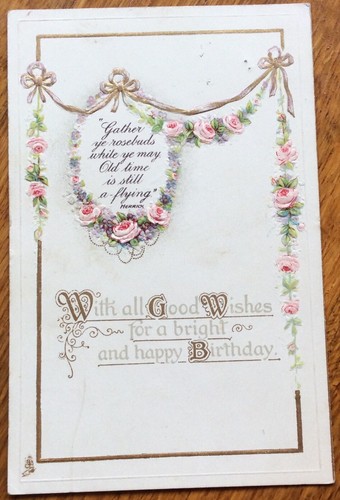 "Gather
ye rosebuds
while ye may
Old time
is still
a-flying."
HERRICK
With all Good Wishes
for a bright
and happy Birthday.